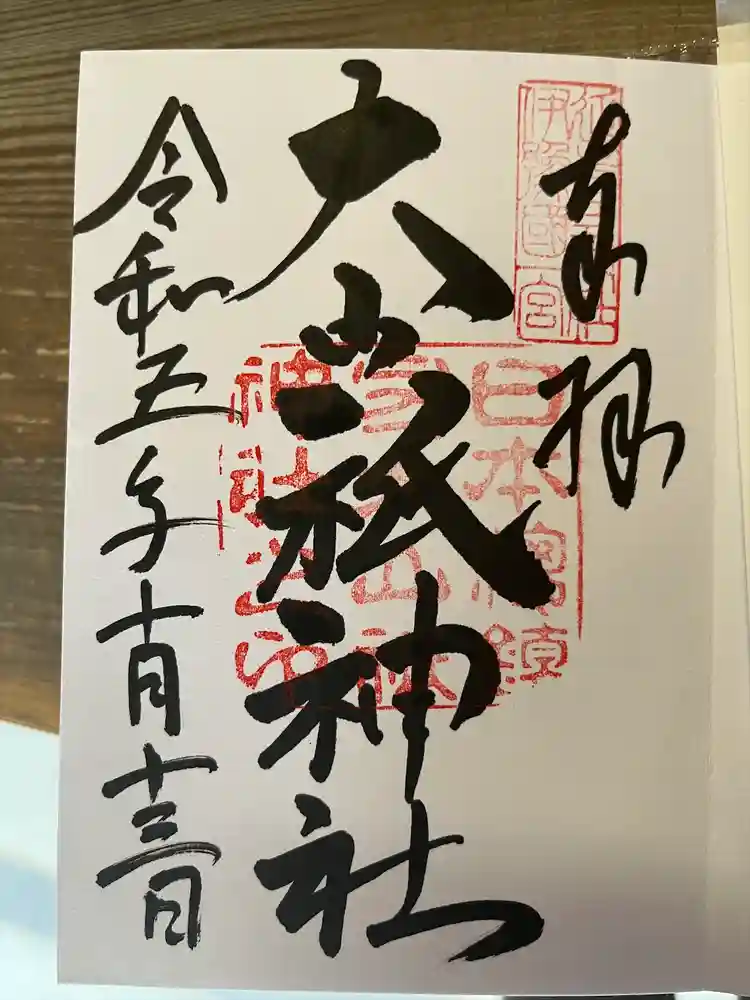 奉拝
伊豫國一宮
日本總鎮
神社之印
大山祇神社
令和五年十月十三日